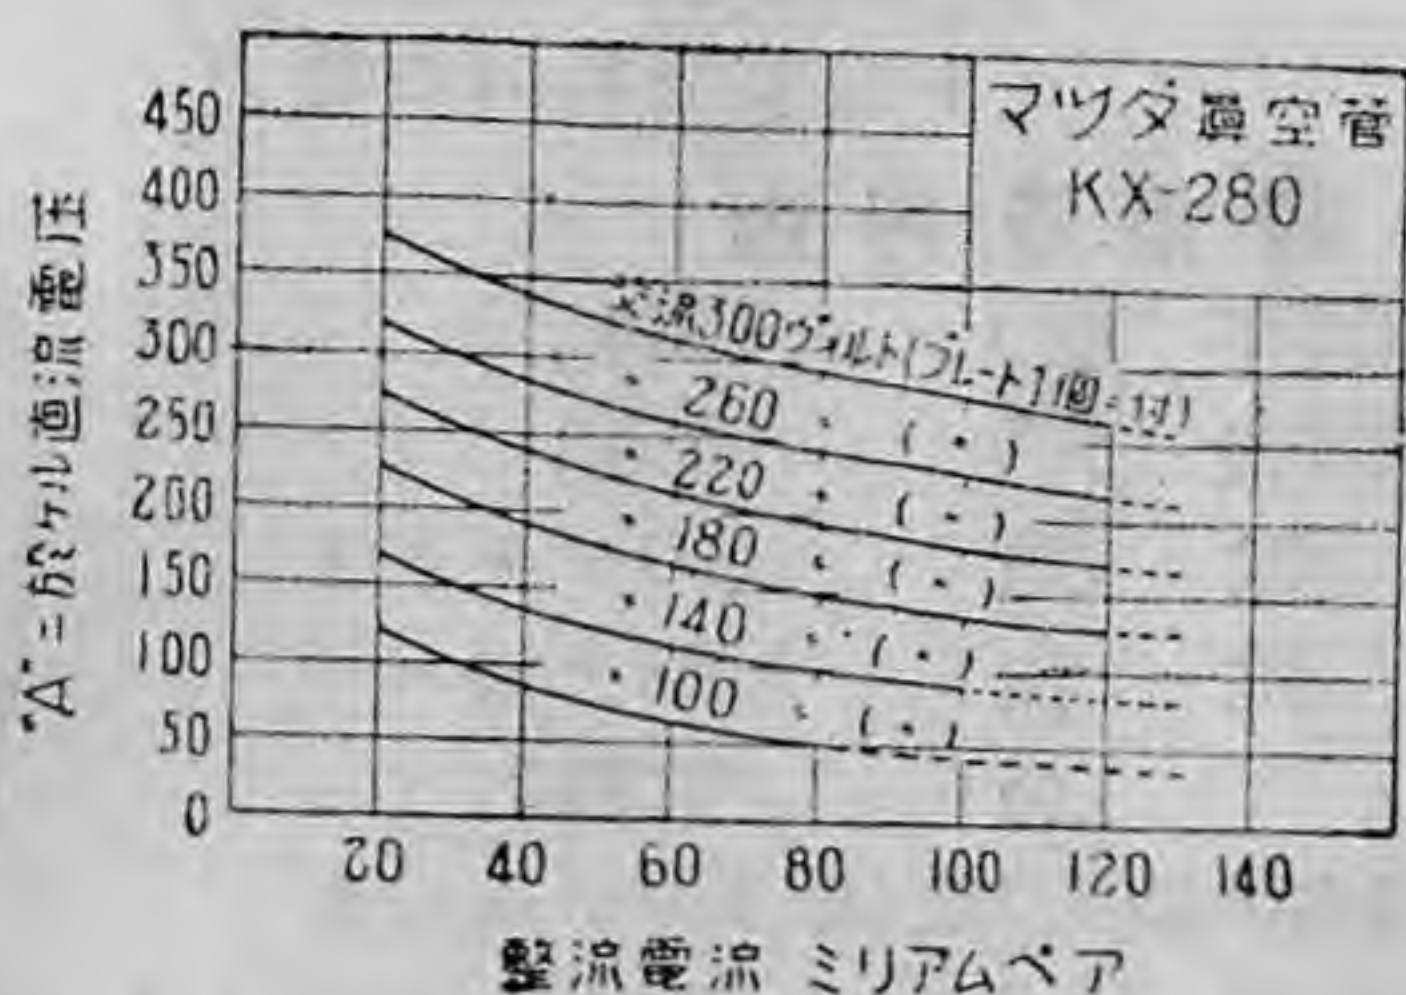 マツダ眞空管
KX-280
"A"ニ於ケル直流電圧
450
400
350
300
250
200
150
100
50
0
交流300ヴォルト(プレート1個ニ付)
〃 260 〃 ( 〃 )
〃 220 〃 ( 〃 )
〃 180 〃 ( 〃 )
〃 140 〃 ( 〃 )
〃 100 〃 ( 〃 )
20 40 60 80 100 120 140
整流電流 ミリアムペア